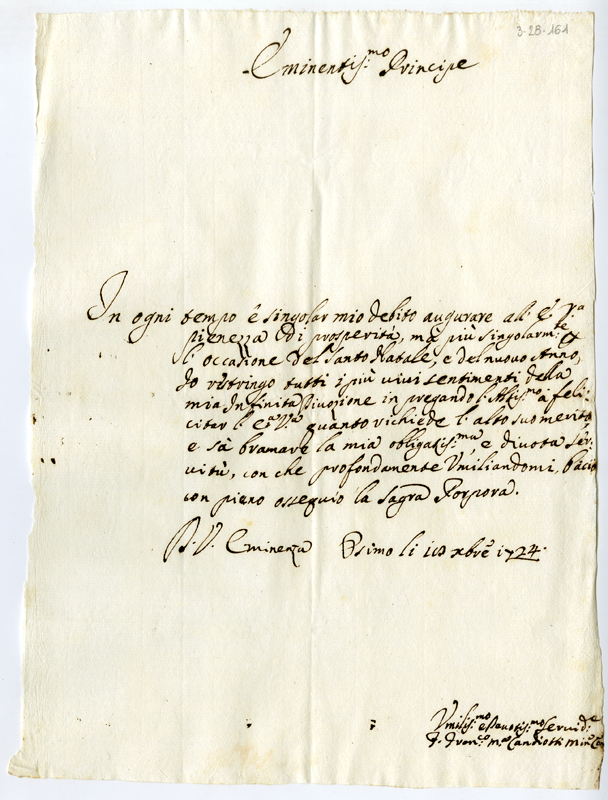 3-28-161
Eminentis:mo Principe
In ogni tempo è singolar mio debito augurare all' E. Va
pienezza di prosperità, mà più singolarm:te
l' occasione del Santo Natale, e del nuovo Anno,
Io ristringo tutti i più vivi sentimenti della
mia Infinita Divozione in pregando l' Altis:mo à feli:
citar l' Ea Va quanto richiede l' alto suo merito
e sà bramare la mia obligatis:ma, e divota Ser:
vitù, con che profondamente Umiliandomi, bacio
con pieno ossequio la Sagra Porpora.
D. V. Eminenza Osimo li xbre 1724.
Umilis:mo e Devotis:mo Servid:e
F. Franc:co Ma Candiotti Min: